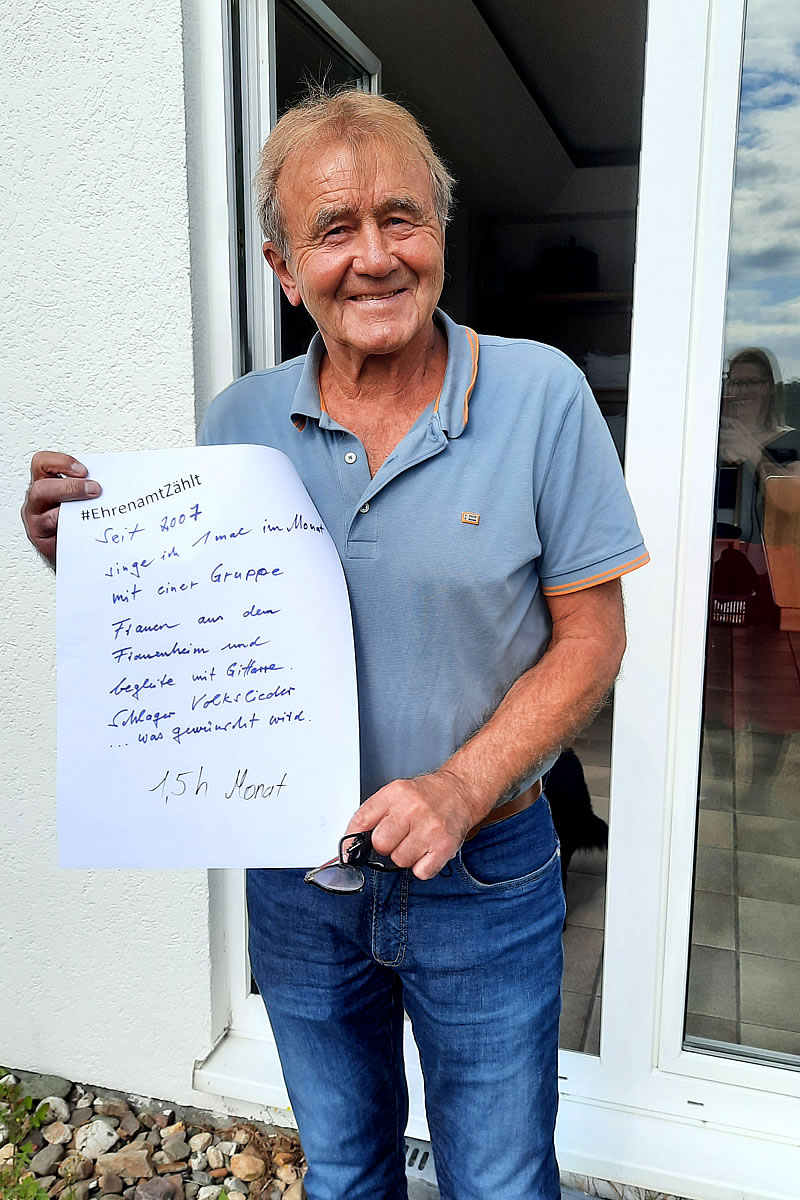 #EhrenamtZählt
Seit 2007
singe ich 1 mal im Monat
mit einer Gruppe
Frauen aus dem
Frauenheim und
begleite mit Gittarre.
Schlager Volkslieder
... was gewünscht wird.
1,5h Monat